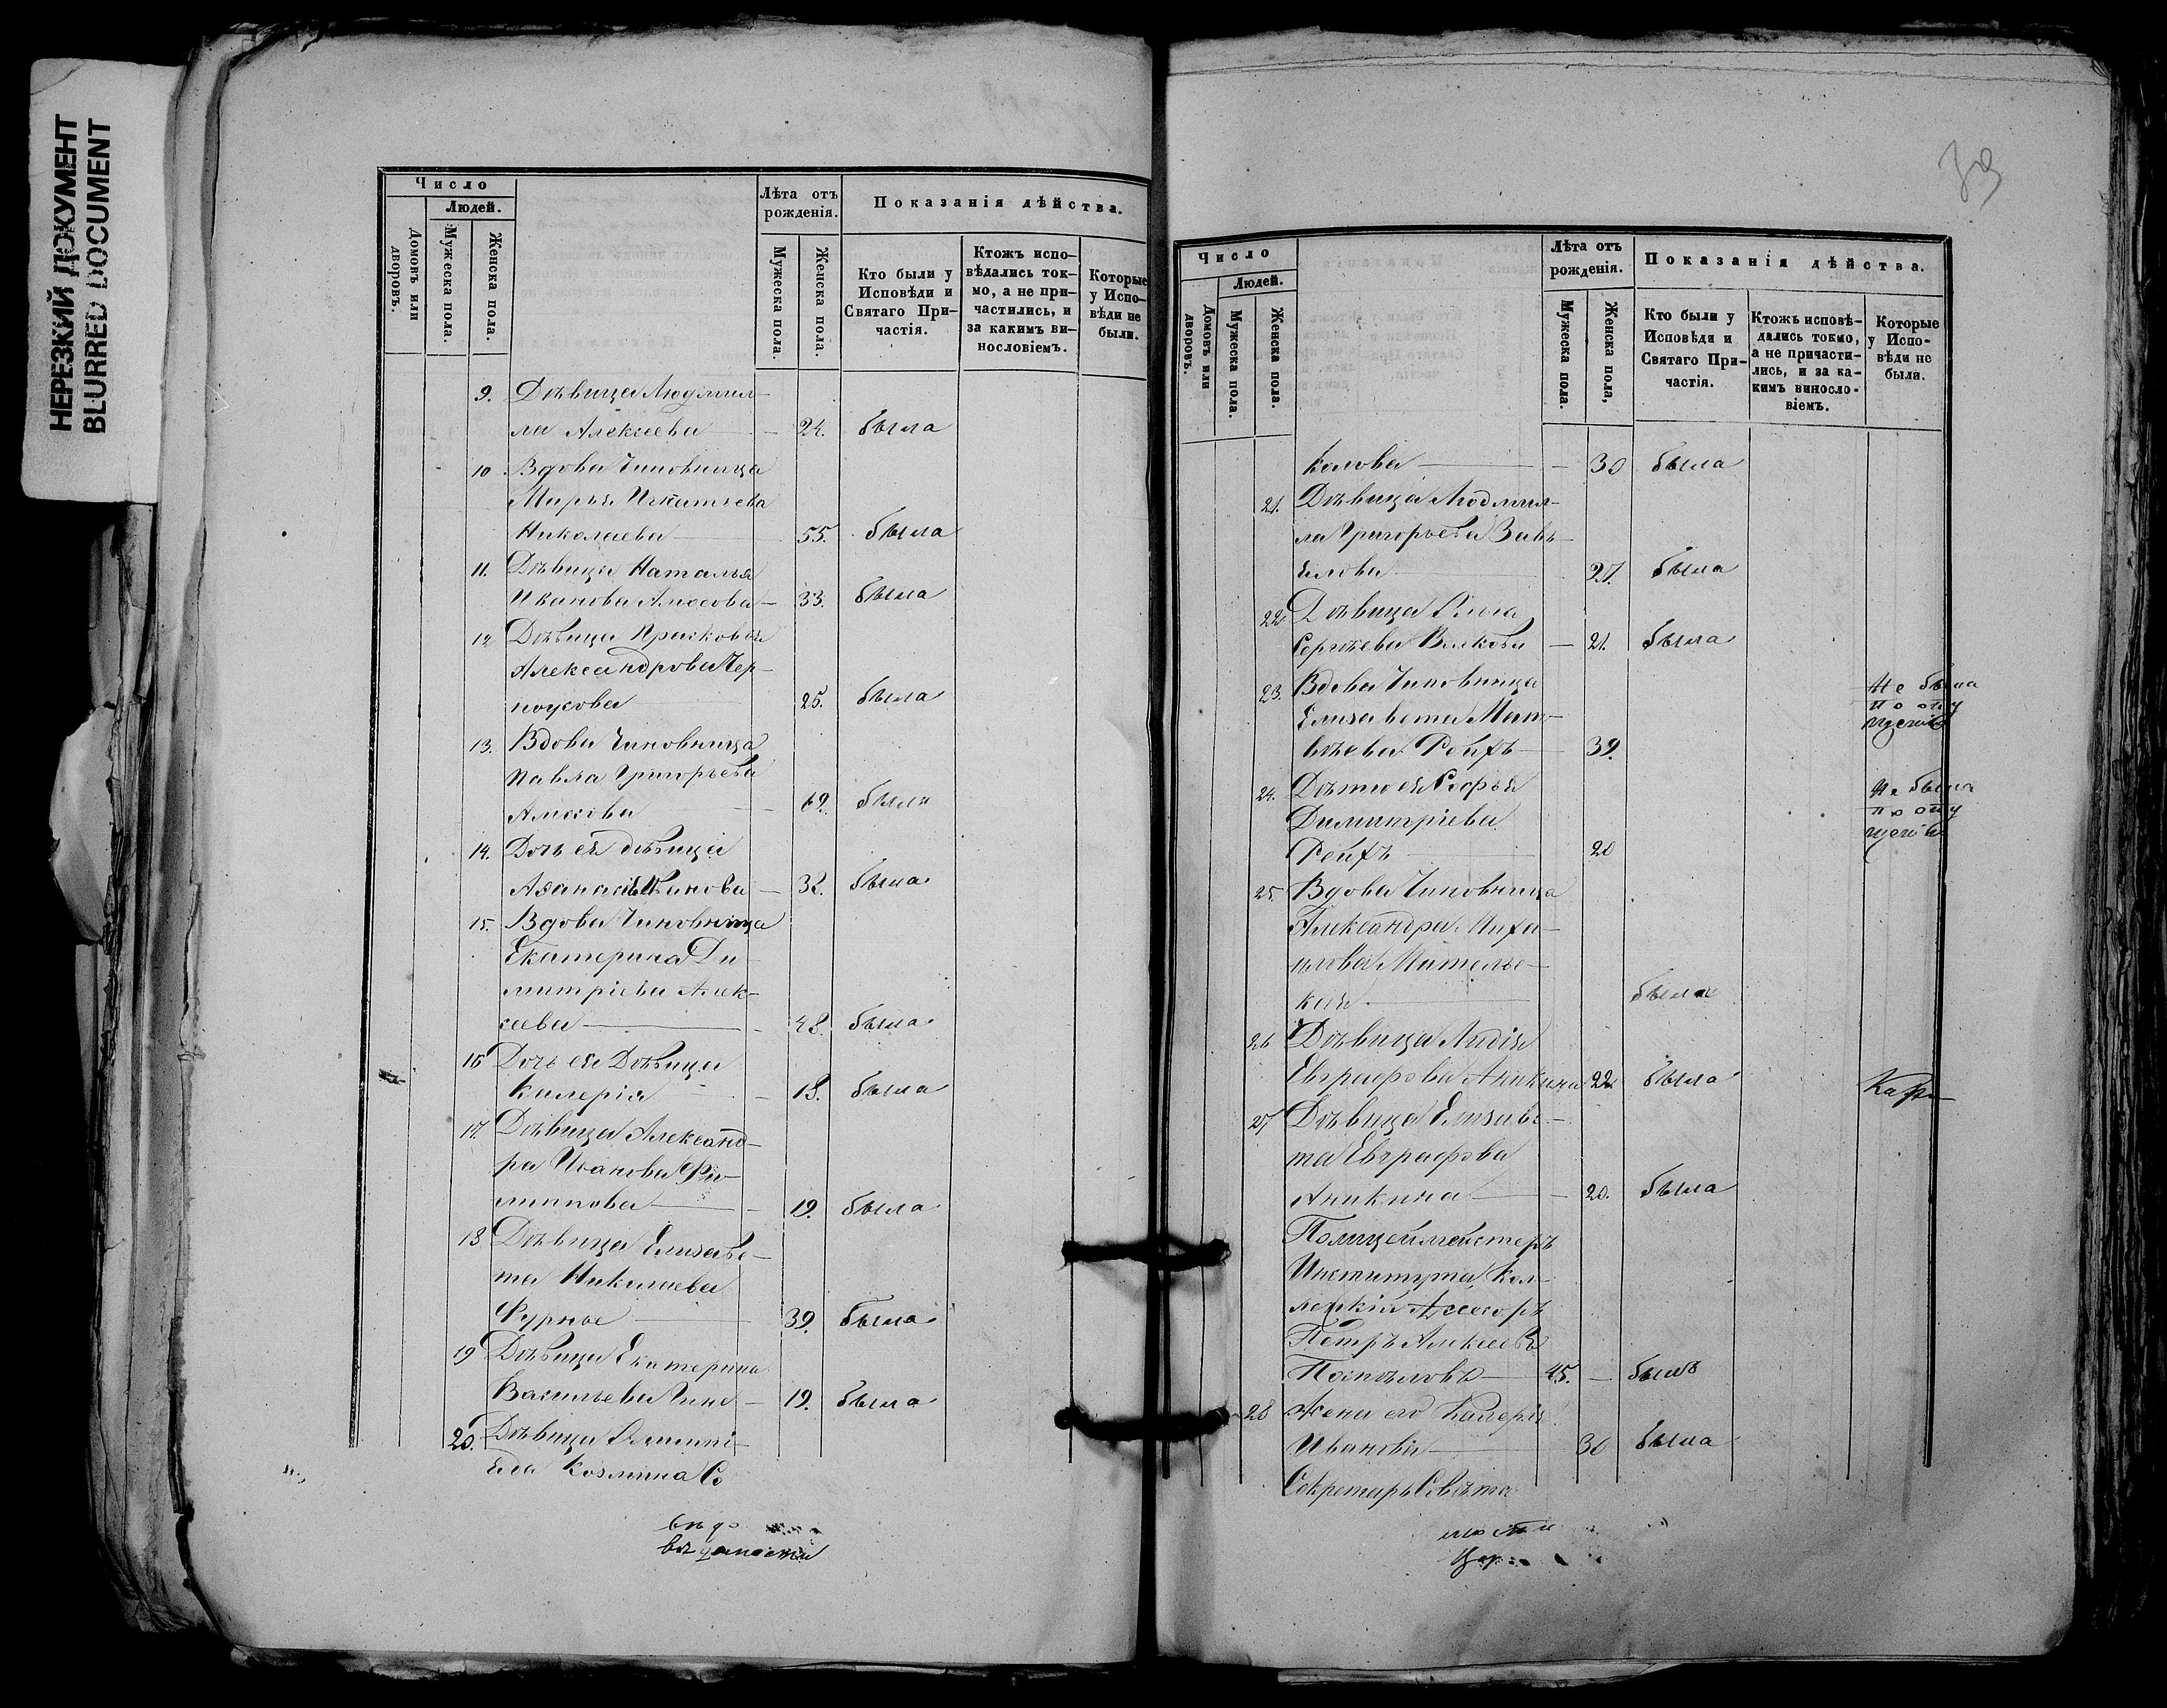 НЕРЕЗКИЙ ДОКУМЕНТ
BLURRED DOCUMENT
Число
Людей.
Домовъ или дворовъ.
Мужеска пола.
Женска пола.
Лѣта отъ рожденія.
Мужеска пола.
Женска пола.
Показанія дѣйства.
Кто были у Исповѣди и Святаго При-
частія.
Ктожъ испо-
вѣдались ток-
мо, а не при-
частились, и
за какимъ ви-
нословіемъ.
Которые
у Испо-
вѣди не
были.
9. Дѣвица Людмил-
ла Алексѣева 24. была
10 Вдова Чиновница
Марья Игнатьева
Николаева 55. была
11. Дѣвица Наталья
Иванова Амосова 33. была
12 Дѣвица Прасковья
Александрова Чер-
ноусова 25. была
13. Вдова Чиновница
Павла Григорьева
Амосова 69. была
14. Дочь ея дѣвица
была
15. Вдова Чиновница
Екатерина Ди-
митріева Алек-
сѣева 48. была
16 Дочь ея Дѣвица
Калерія 18. была
17. Дѣвица Александ-
ра Иванова Фи-
липпова 19. была
18 Дѣвица Елизаве-
та Николаева
Фурнье 39. была
19 Дѣвица Екатерина
Васильева 19. была
20. Дѣвица
Козмина Со
вѣдомости
39
Число
Людей.
Домовъ или дворовъ.
Мужеска пола.
Женска пола.
Лѣта отъ рожденія.
Мужеска пола.
Женска пола,
Показанія дѣйства.
Кто были у
Исповѣди и
Святаго При-
частія.
Ктожъ исповѣ-
дались токмо,
а не причасти-
лись, и за ка-
кимъ винос ло-
віемъ.
Которые
у Испо-
вѣди не
были.
колова 30 была
21. Дѣвица Людмил-
ла Григорьева Завь-
ялова 27. была
22 Дѣвица
Сергѣева Волкова 21. была
23. Вдова Чиновница Не была
Елизавета Мат- по опу
вѣева Рейхъ 39. щенію
24. Дочь ея Софья Не была
Димитріева по опу
Рейхъ 20 щенію
25. Вдова Чиновница
Александра Миха-
илова
кая была
26 Дѣвица Лидія
Евграфова Аникина 22 была
27 Дѣвица Елизаве-
та Евграфова
Аникина 20. была
Полицеймейстеръ
Института Кол-
лежскій Ассесоръ
Петръ Алексѣевъ
Поспѣловъ 45. былъ
28 Жена его Валерія
Иванова 30 была
Секретарь Совѣта